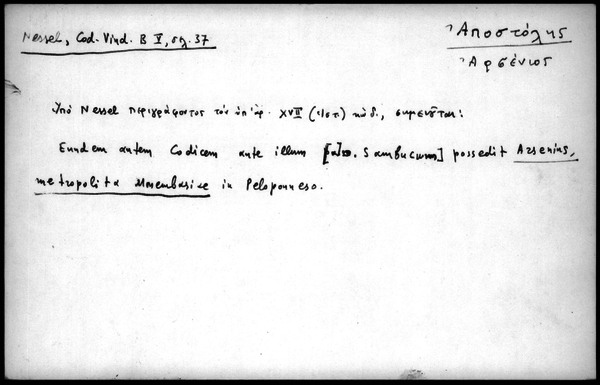 Nessel, Cod. Vind. B V, σελ. 37
Ἀποστόλης
Ἀρσένιος
Ὑπὸ Nessel περιγράφοντος τὸν ὑπ' ἀρ. XVII (ἱστ.) κώδ., σημειοῦται:
Eundem autem Codicem ante illum Sambucum] possedit Arsenius,
metropolita Monembasiae in Peloponneso.